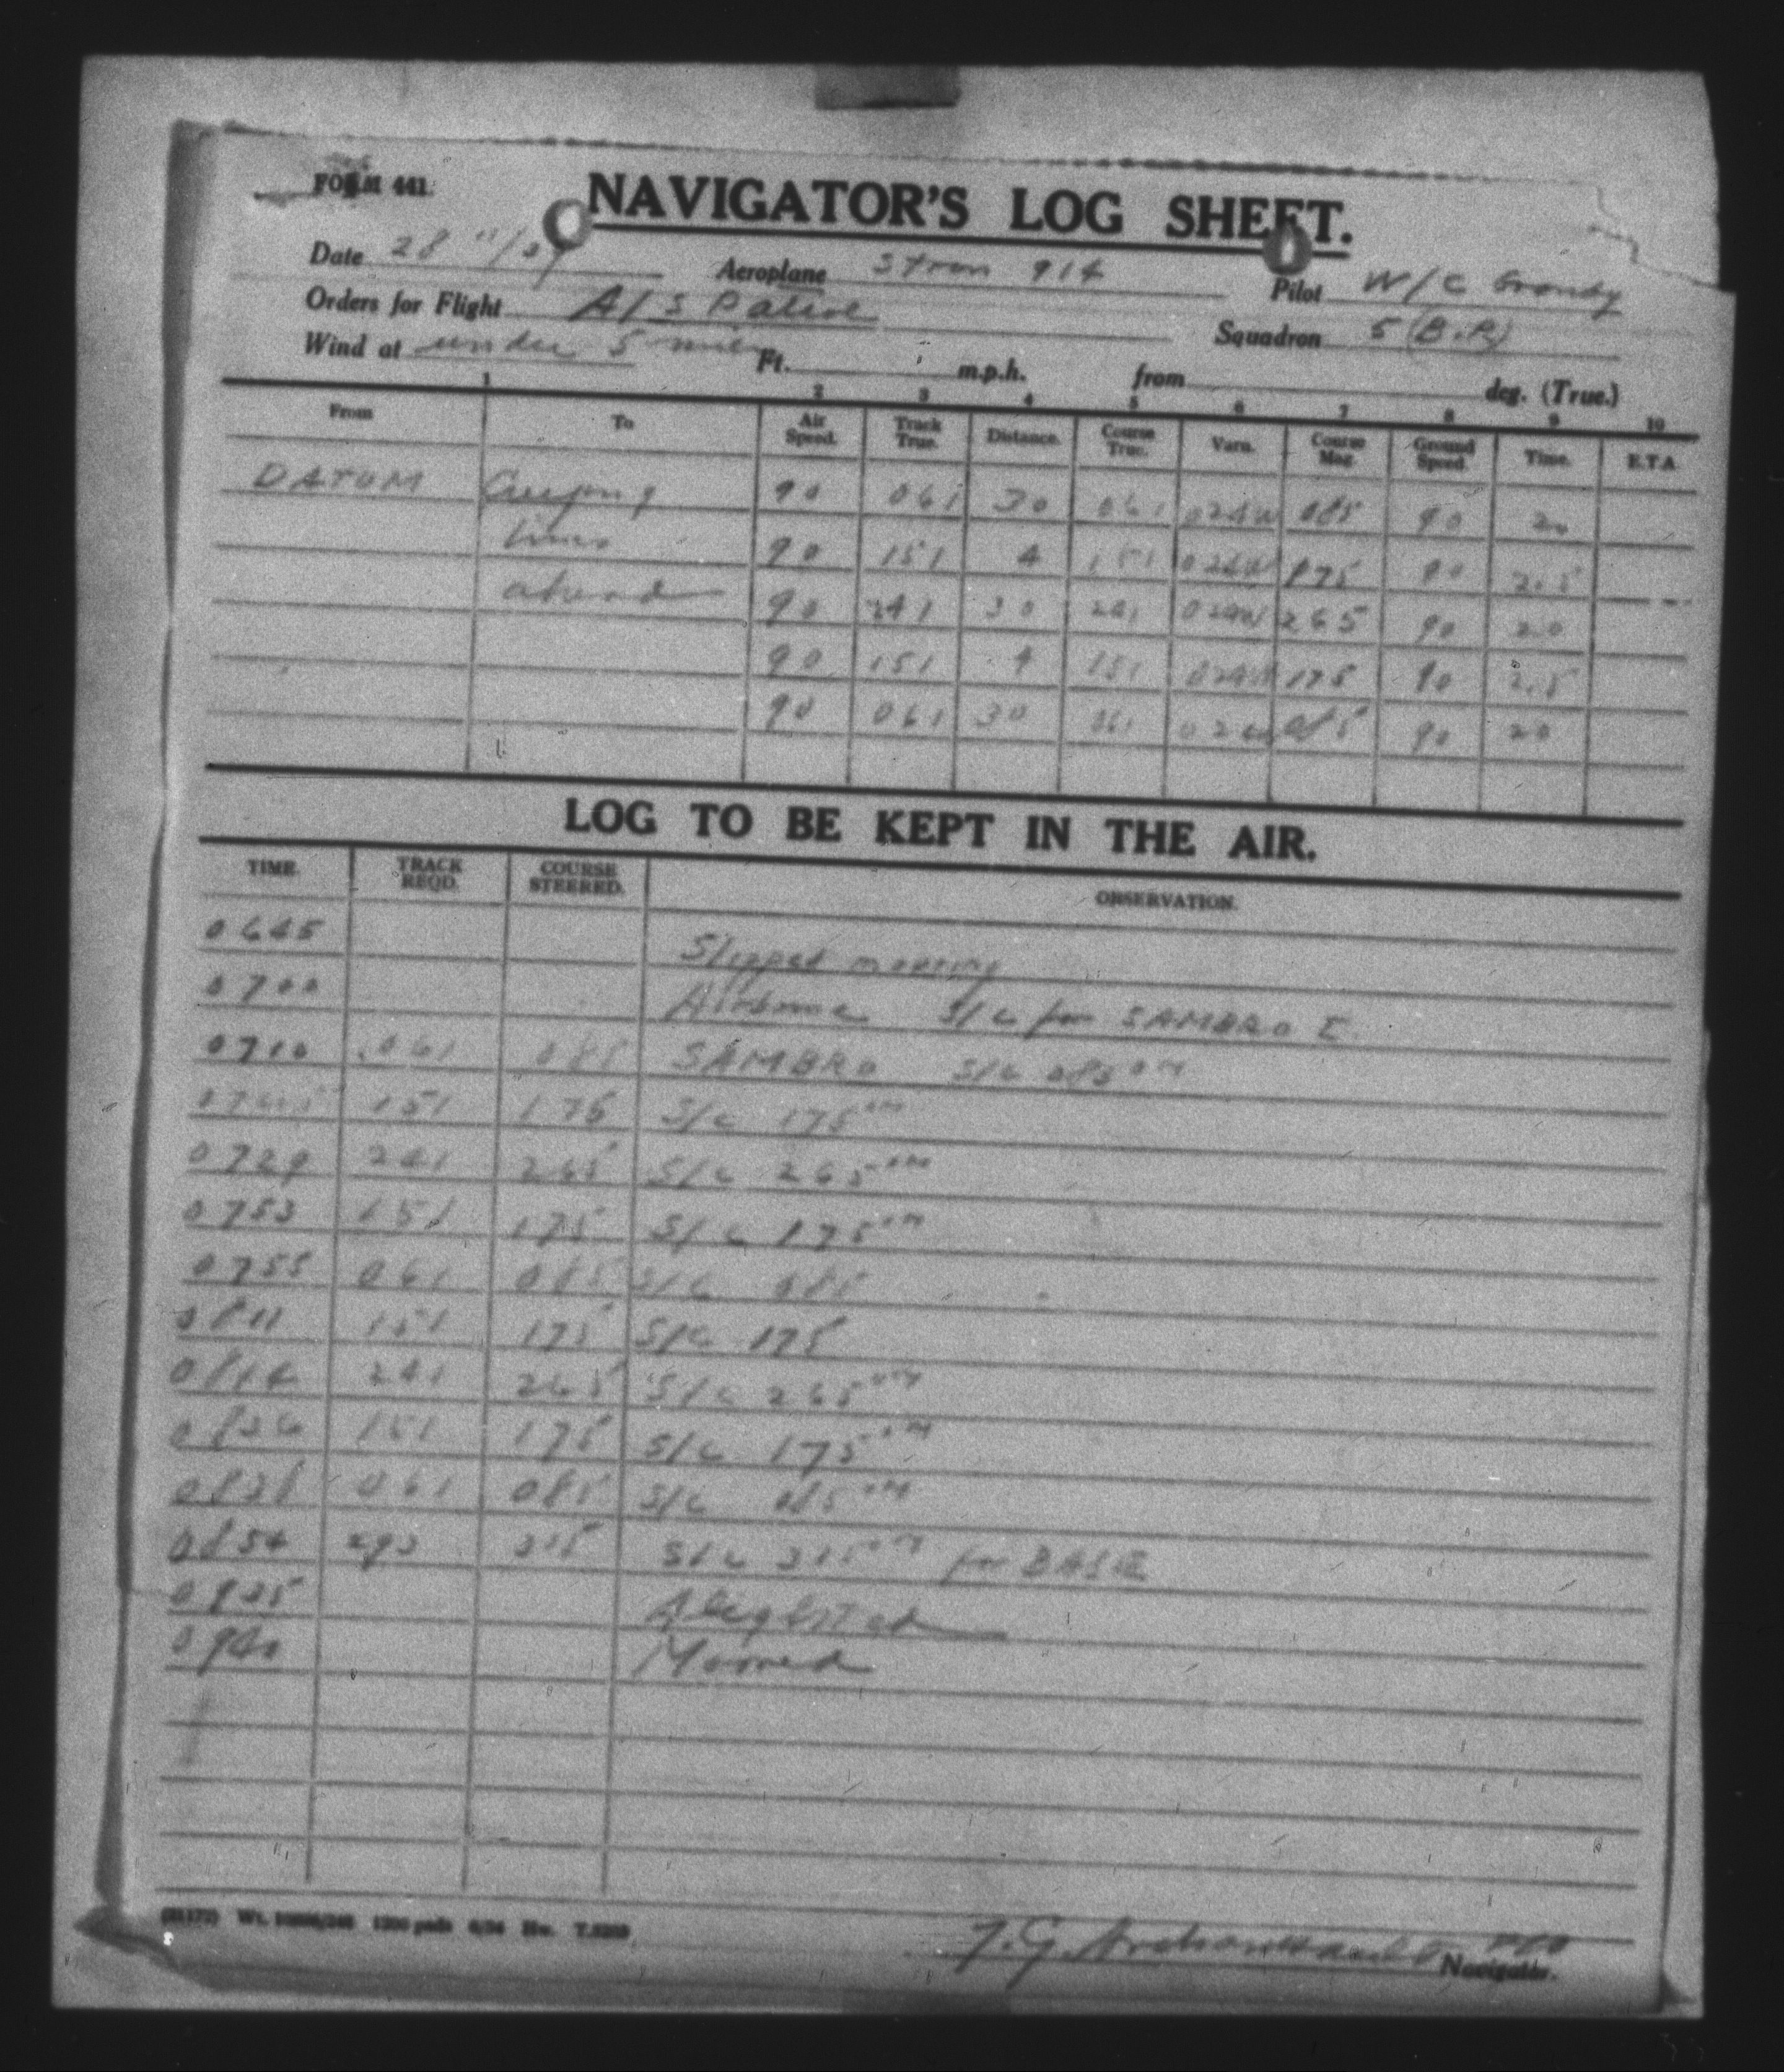 FORM 441.
NAVIGATOR'S LOG SHEET.
Date 28 11/39 Aeroplane Stran 914 Pilot W/C Grandy
Orders for Flight A/S Patrol Squadron 5 (B.R)
Wind at under 5 miles Ft. m.p.h. from deg. (True.)
1 2 3 4 5 6 7 8 9 10
From To Air Speed. Track True. Distance. Course True. Varn. Course Mag. Ground Speed. Time. E.T.A.
DATUM 90 061 30 061 024W 085 90 20
90 151 4 151 024W 175 90 2.5
ahead 90 241 30 241 024W 265 90 20
90 151 4 151 024W 175 90 2.5
90 061 30 061 024 085 90 20
LOG TO BE KEPT IN THE AIR.
TIME. TRACK REQD. COURSE STEERED. OBSERVATION.
0645 Slipped mooring
0700 Airborne S/C for SAMBRO E
0710 061 085 SAMBRO S/C 085°M
151 175 S/C 175°M
0729 241 265 S/C 265°M
0753 151 175 S/C 175°M
0755 061 085 S/C 085
0811 151 175 S/C 175
0814 241 265 S/C 265°M
0826 151 175 S/C 175°M
0828 061 085 S/C 085°M
0854 293 315 S/C 315°M for BASE
0925 Alighted
0940 Moored
1200 pads 6/34
Navigator.